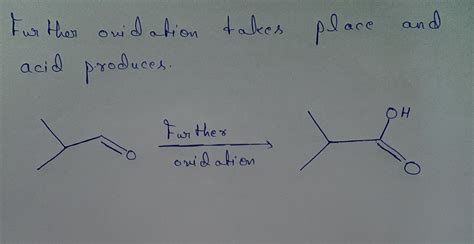 Further oxidation takes place and
acid produces.
OH
Further
oxidation
O
O